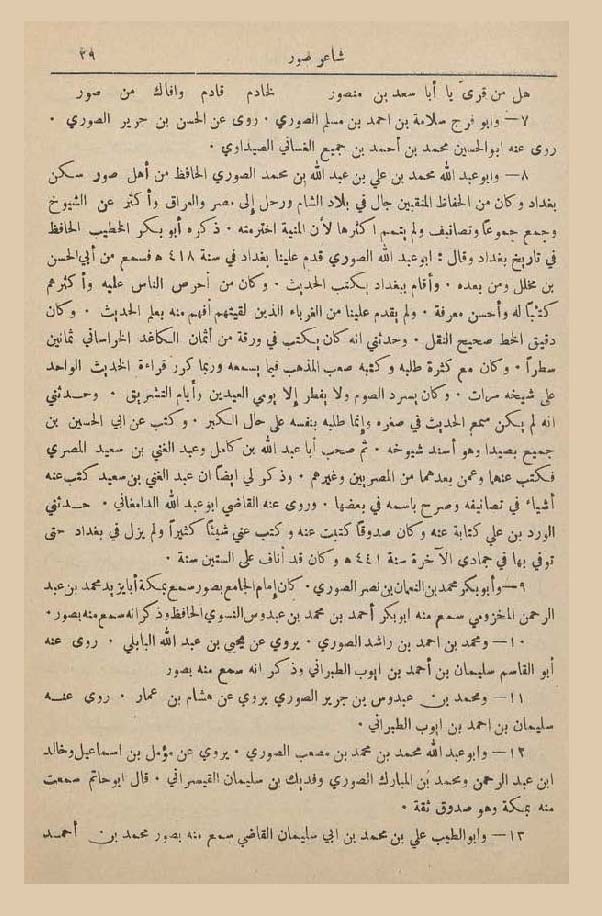 شاعر صور ٣٩
هل من قرى يا أبا سعد بن منصور لخادم قادم وافاك من صور
٧ – وابو فرج سلامة بن احمد بن مسلم الصوري . روى عن الحسن بن جرير الصوري .
روى عنه ابو الحسين محمد بن أحمد بن جميع الغساني الصيداوي .
٨ – وابو عبد الله محمد بن علي بن عبد الله بن محمد الصوري الحافظ من أهل صور سكن
بغداد وكان من الحفاظ المنقبين جال في بلاد الشام ورحل إلى مصر والعراق وأكثر عن الشيوخ
وجمع جموعاً وتصانيف ولم يتمم اكثرها لأن المنية اخترمته . ذكره أبو بكر الخطيب الحافظ
في تاريخ بغداد وقال : ابو عبد الله الصوري قدم علينا بغداد في سنة ٤١٨ ه فسمع من أبي الحسن
بن مخلد ومن بعده . وأقام ببغداد يكتب الحديث . وكان من أحرص الناس عليه وأكثرهم
كتباً له وأحسن معرفة . ولم يقدم علينا من الغرباء الذين لقيتهم أفهم منه بعلم الحديث . وكان
دقيق الخط صحيح النقل . وحدثني انه كان يكتب في ورقة من أثمان الكاغد الخراساني ثمانين
سطراً . وكان مع كثرة طلبه وكتبه صعب المذهب فيما يسمعه وربما كرر قراءة الحديث الواحد
على شيخه مرات . وكان يسرد الصوم ولا يفطر إلا يومي العيدين وأيام التشريق . وحدثني
انه لم يكن سمع الحديث في صغره وإنما طلبه بنفسه على حال الكبر . وكتب عن ابي الحسين بن
جميع بصيدا وهو أسند شيوخه . ثم صحب أبا عبد الله بن كامل وعبد الغني بن سعيد المصري
فكتب عنهما وعمن بعدهما من المصريين وغيرهم . وذكر لي ايضاً ان عبد الغني بن سعيد كتب عنه
أشياء في تصانيفه وصرح باسمه في بعضها . وروى عنه القاضي ابو عبد الله الدامغاني . حدثني
الورد بن علي كتابة عنه وكان صدوقاً كتبت عنه وكتب عني شيئاً كثيراً ولم يزل في بغداد حتى
توفي بها في جمادي الآخرة سنة ٤٤١ ه وكان قد أناف على الستين سنة .
٩ – وأبو بكر محمد بن النعمان بن نصر الصوري . كان إمام الجامع بصور سمع بمكة أبا يزيد محمد بن عبد
الرحمن المخزومي سمع منه ابو بكر أحمد بن محمد بن عبدوس النسوي الحافظ وذكر انه سمع منه بصور .
١٠ – ومحمد بن احمد بن راشد الصوري . يروي عن يحيى بن عبد الله البابلي . روى عنه
أبو القاسم سليمان بن أحمد بن ايوب الطبراني وذكر انه سمع منه بصور
١١ – ومحمد بن عبدوس بن جرير الصوري يروي عن هشام بن عمار . روى عنه
سليمان بن احمد بن ايوب الطبراني .
١٢ – وابو عبد الله محمد بن محمد بن مصعب الصوري . يروي عن مؤمل بن اسماعيل وخالد
ابن عبد الرحمن ومحمد بن المبارك الصوري وفديك بن سليمان القيصراني . قال ابو حاتم سمعت
منه بمكة وهو صدوق ثقة .
١٣ – وابو الطيب علي بن محمد بن ابي سليمان القاضي سمع منه بصور محمد بن أحمد